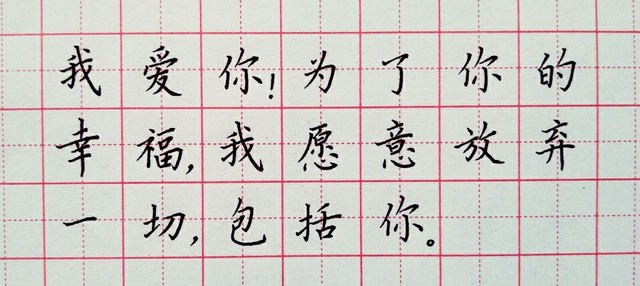 我爱你!为了你的
幸福,我愿意放弃
一切,包括你。